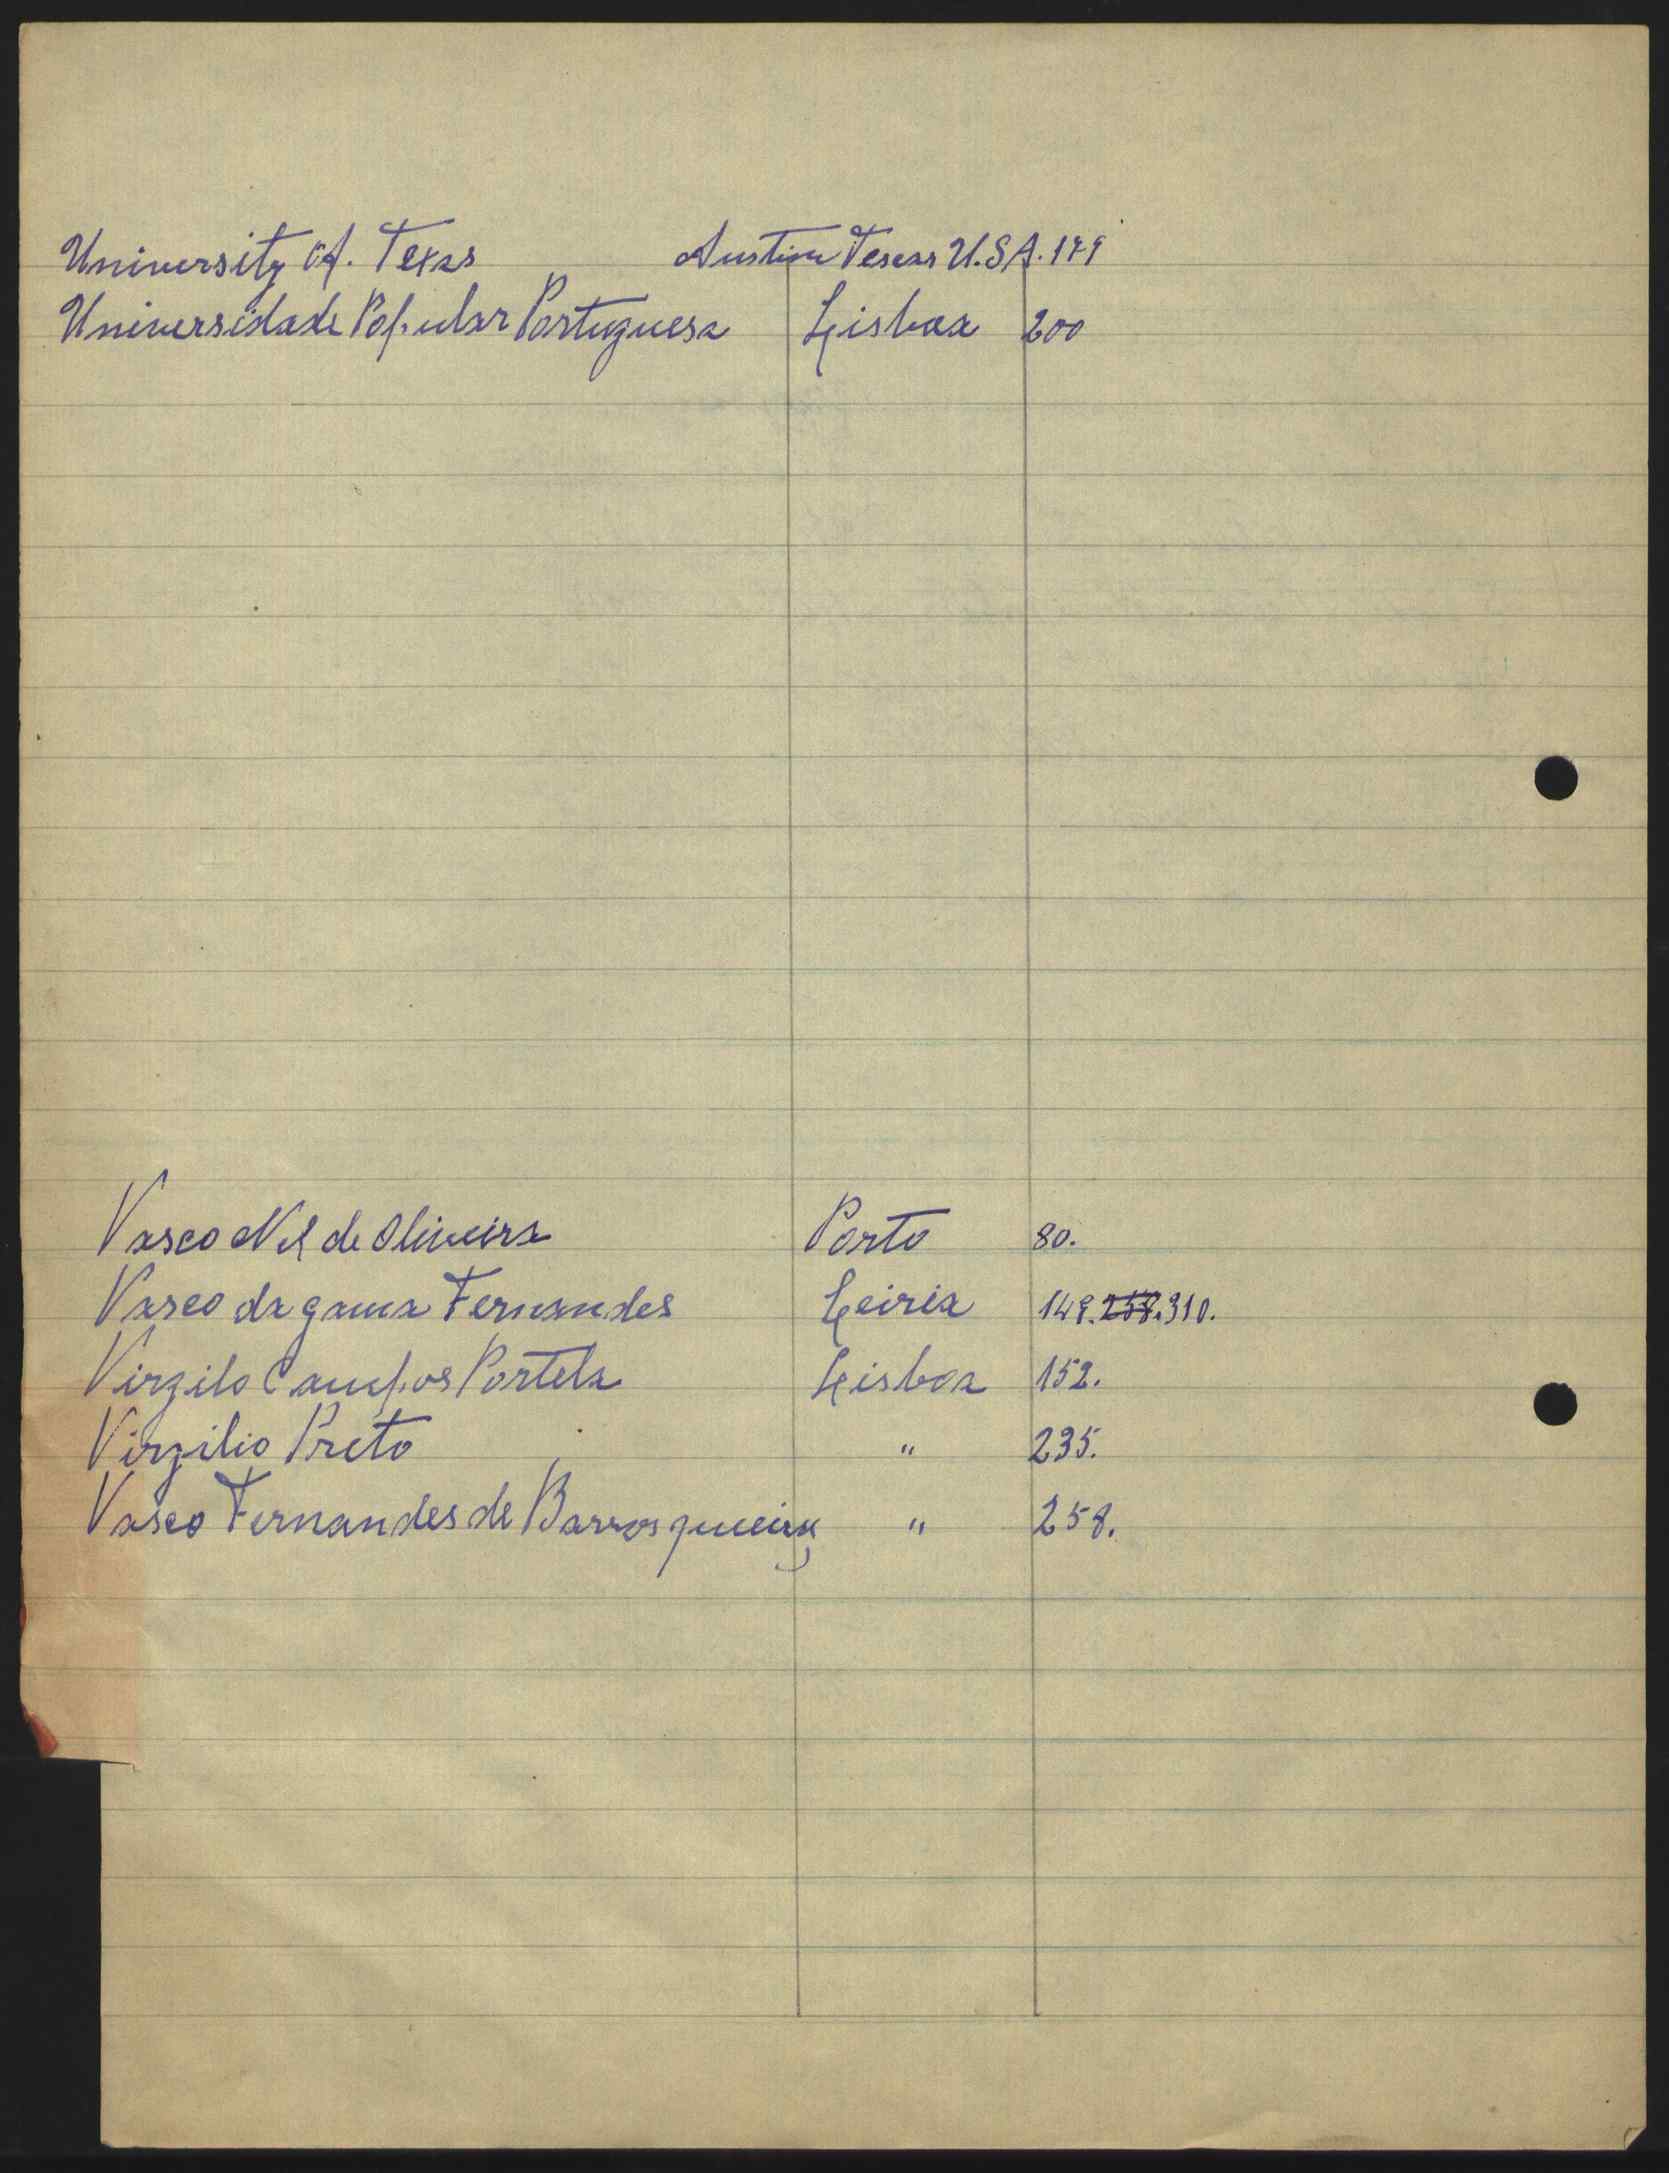 University of. Texas Austin Texas U.S.A. 179
Universidade Popular Portuguesa Lisboa 200
Vasco Nel de Oliveira Porto 80.
Vasco da gama Fernandes Leiria 149. 258. 310.
Virgilo Campos Portela Lisboa 152.
Virgilio Preto " 235.
Vasco Fernandes de Barros " 258.